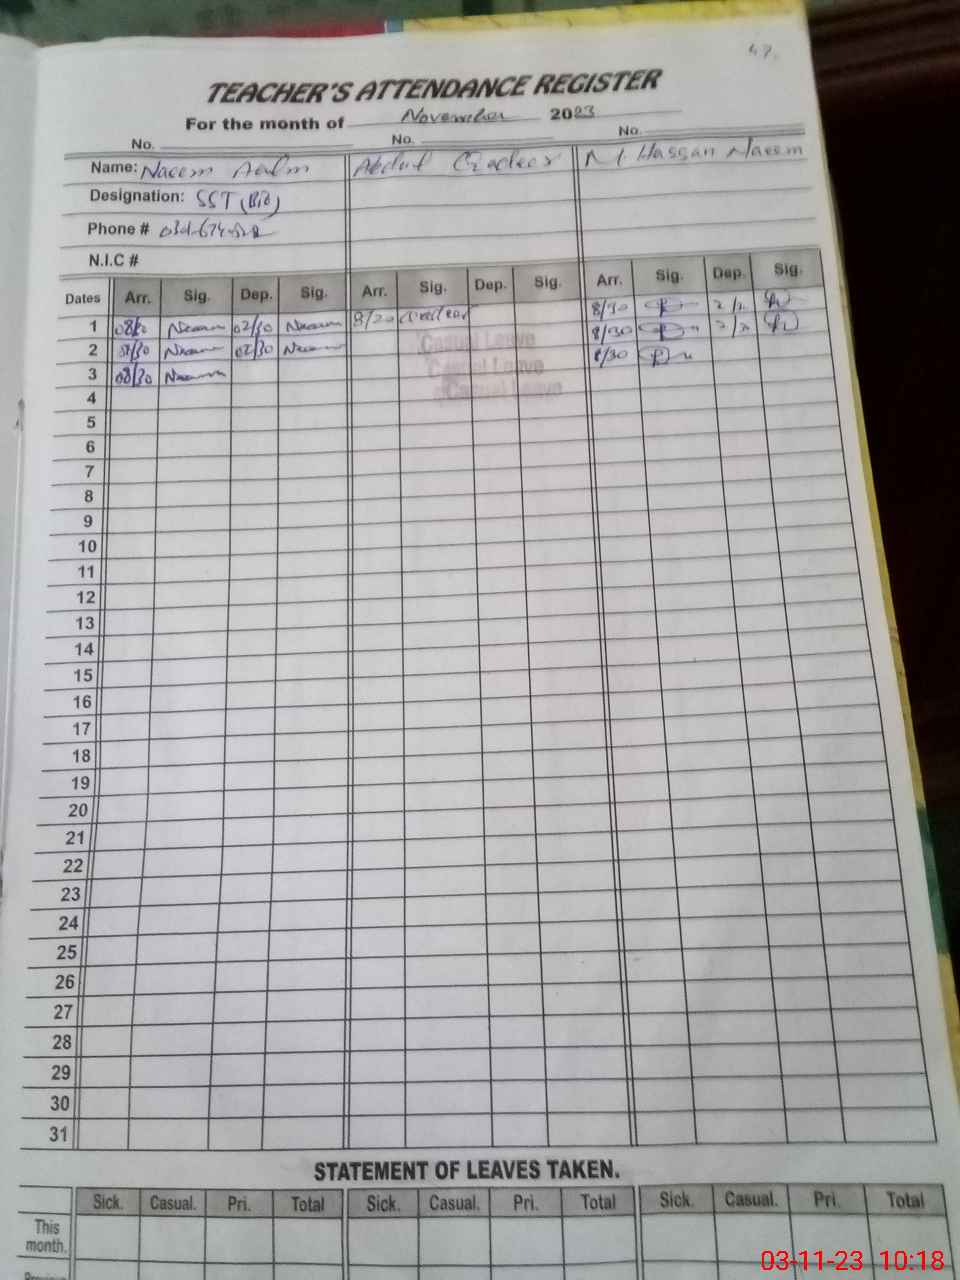 47.
TEACHER'S ATTENDANCE REGISTER
For the month of November 2023
No. No. No.
Name: Naeem Aalm Abdul Qadeer M Hassan Naeem
Designation: SST (Bio)
Phone #
N.I.C #
Dates Arr. Sig. Dep. Sig. Arr. Sig. Dep. Sig. Arr. Sig. Dep. Sig.
1 Naeem 02/30 Naeem 8/20 Qadeer 8/30
2 08/30 Naeem 02/30 Naeem Casual Leave 8/30
3 08/30 Naeem Casual Leave 8/30
4 Casual Leave
5
6
7
8
9
10
11
12
13
14
15
16
17
18
19
20
21
22
23
24
25
26
27
28
29
30
31
STATEMENT OF LEAVES TAKEN.
Sick. Casual. Pri. Total Sick. Casual. Pri. Total Sick. Casual. Pri. Total
This
month.
03-11-23 10:18